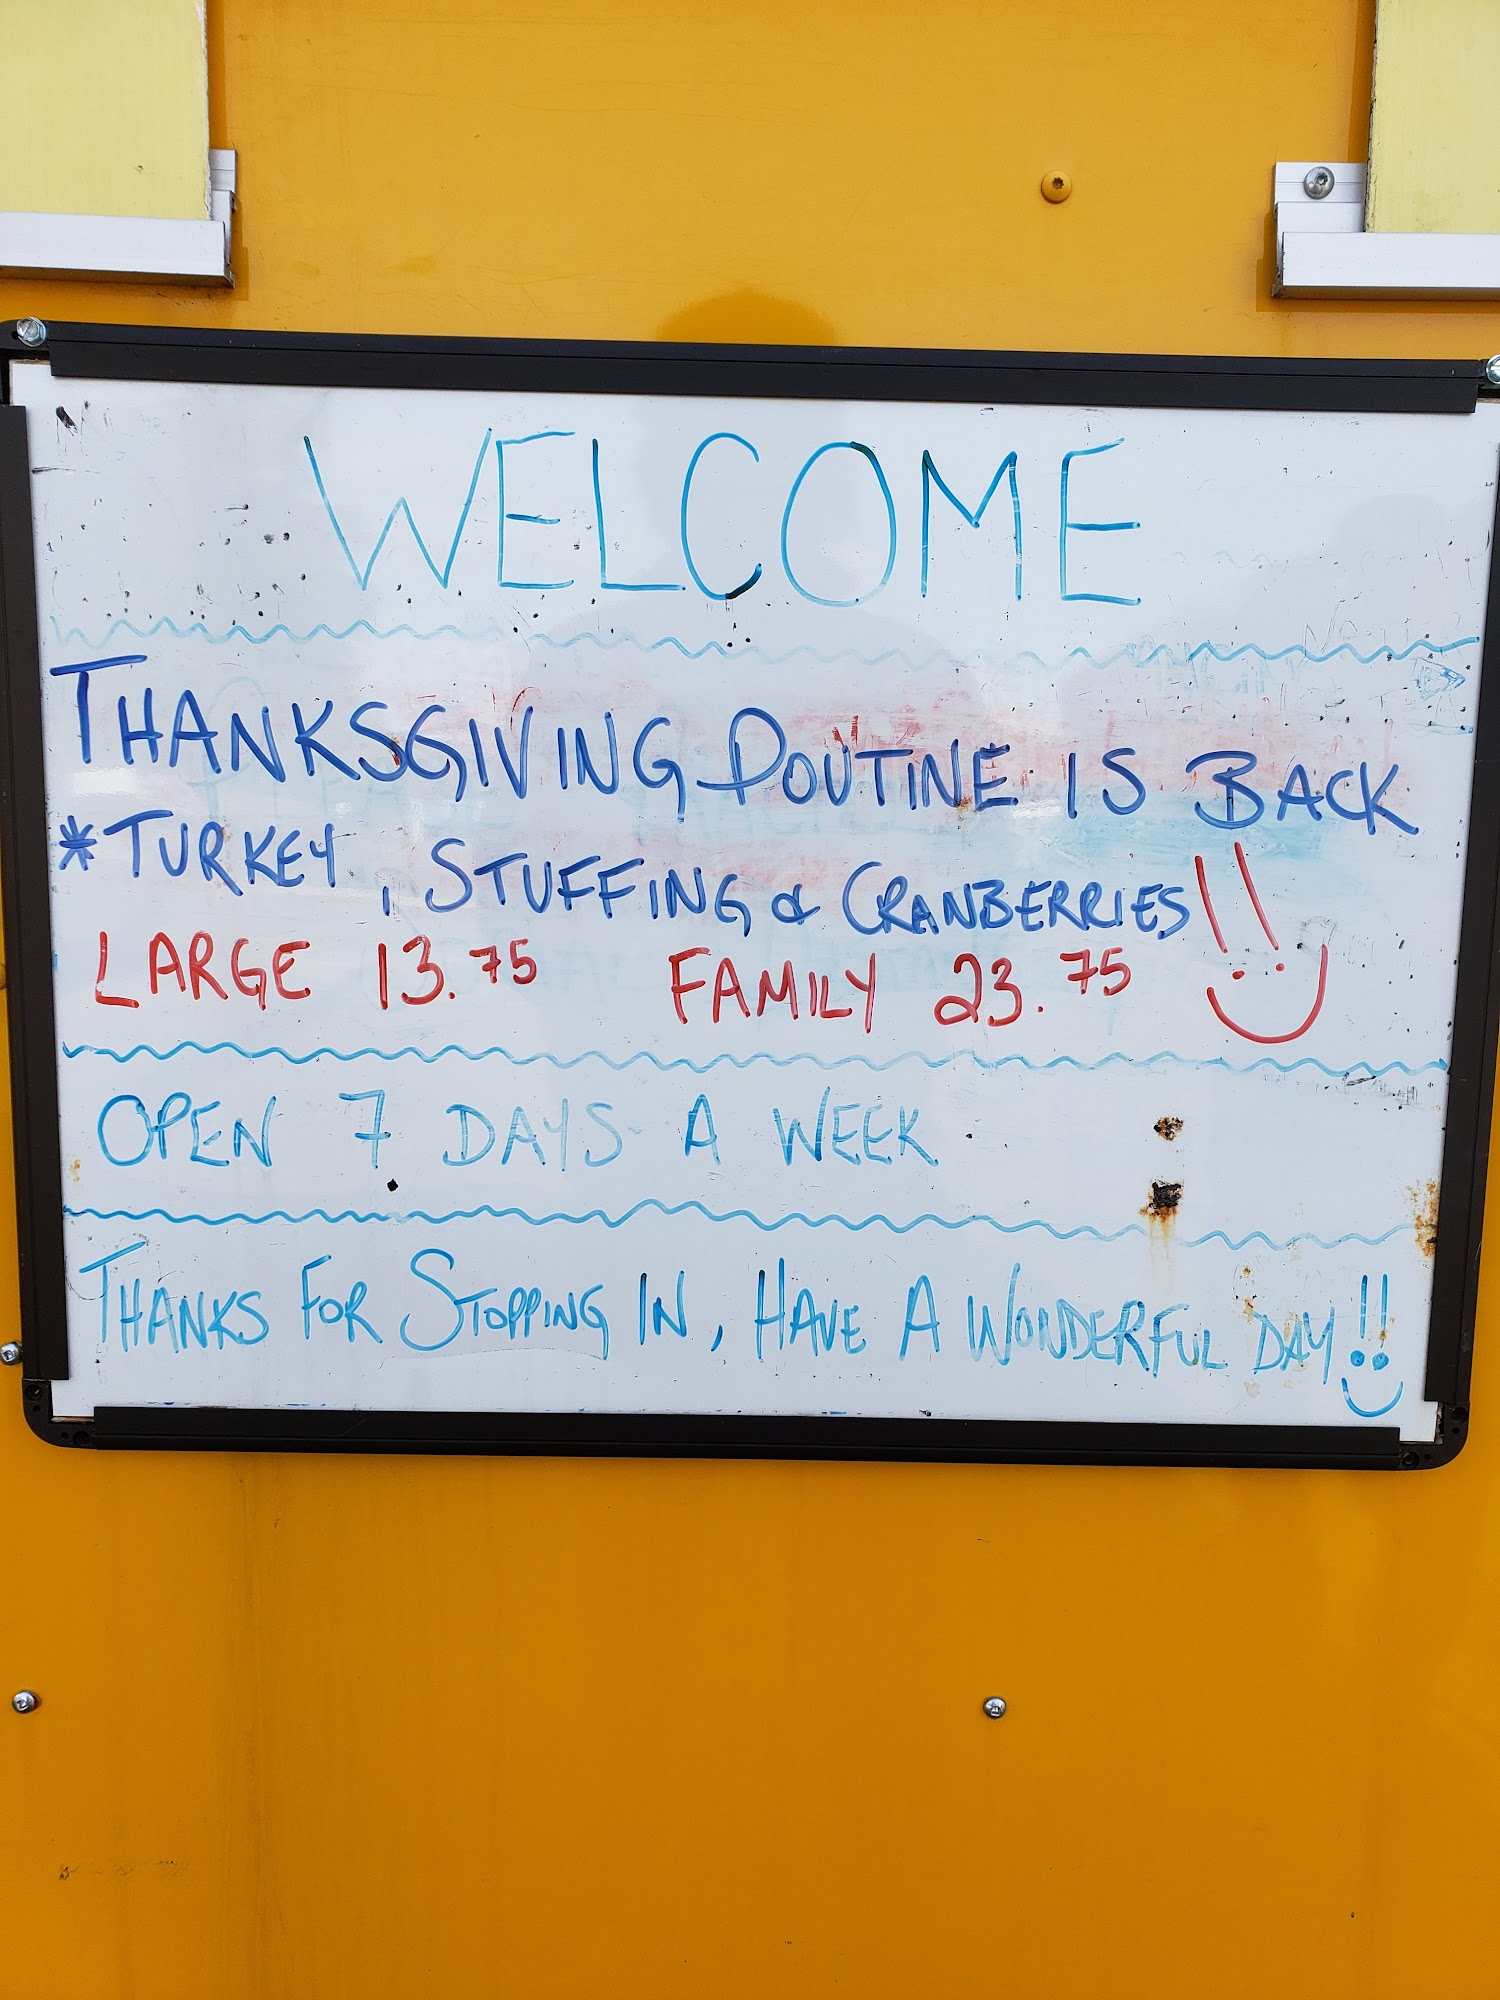 WELCOME
THANKSGIVING POUTINE IS BACK
*TURKEY, STUFFING & CRANBERRIES!!
LARGE 13.75 FAMILY 23.75
OPEN 7 DAYS A WEEK
THANKS FOR STOPPING IN, HAVE A WONDERFUL DAY!!